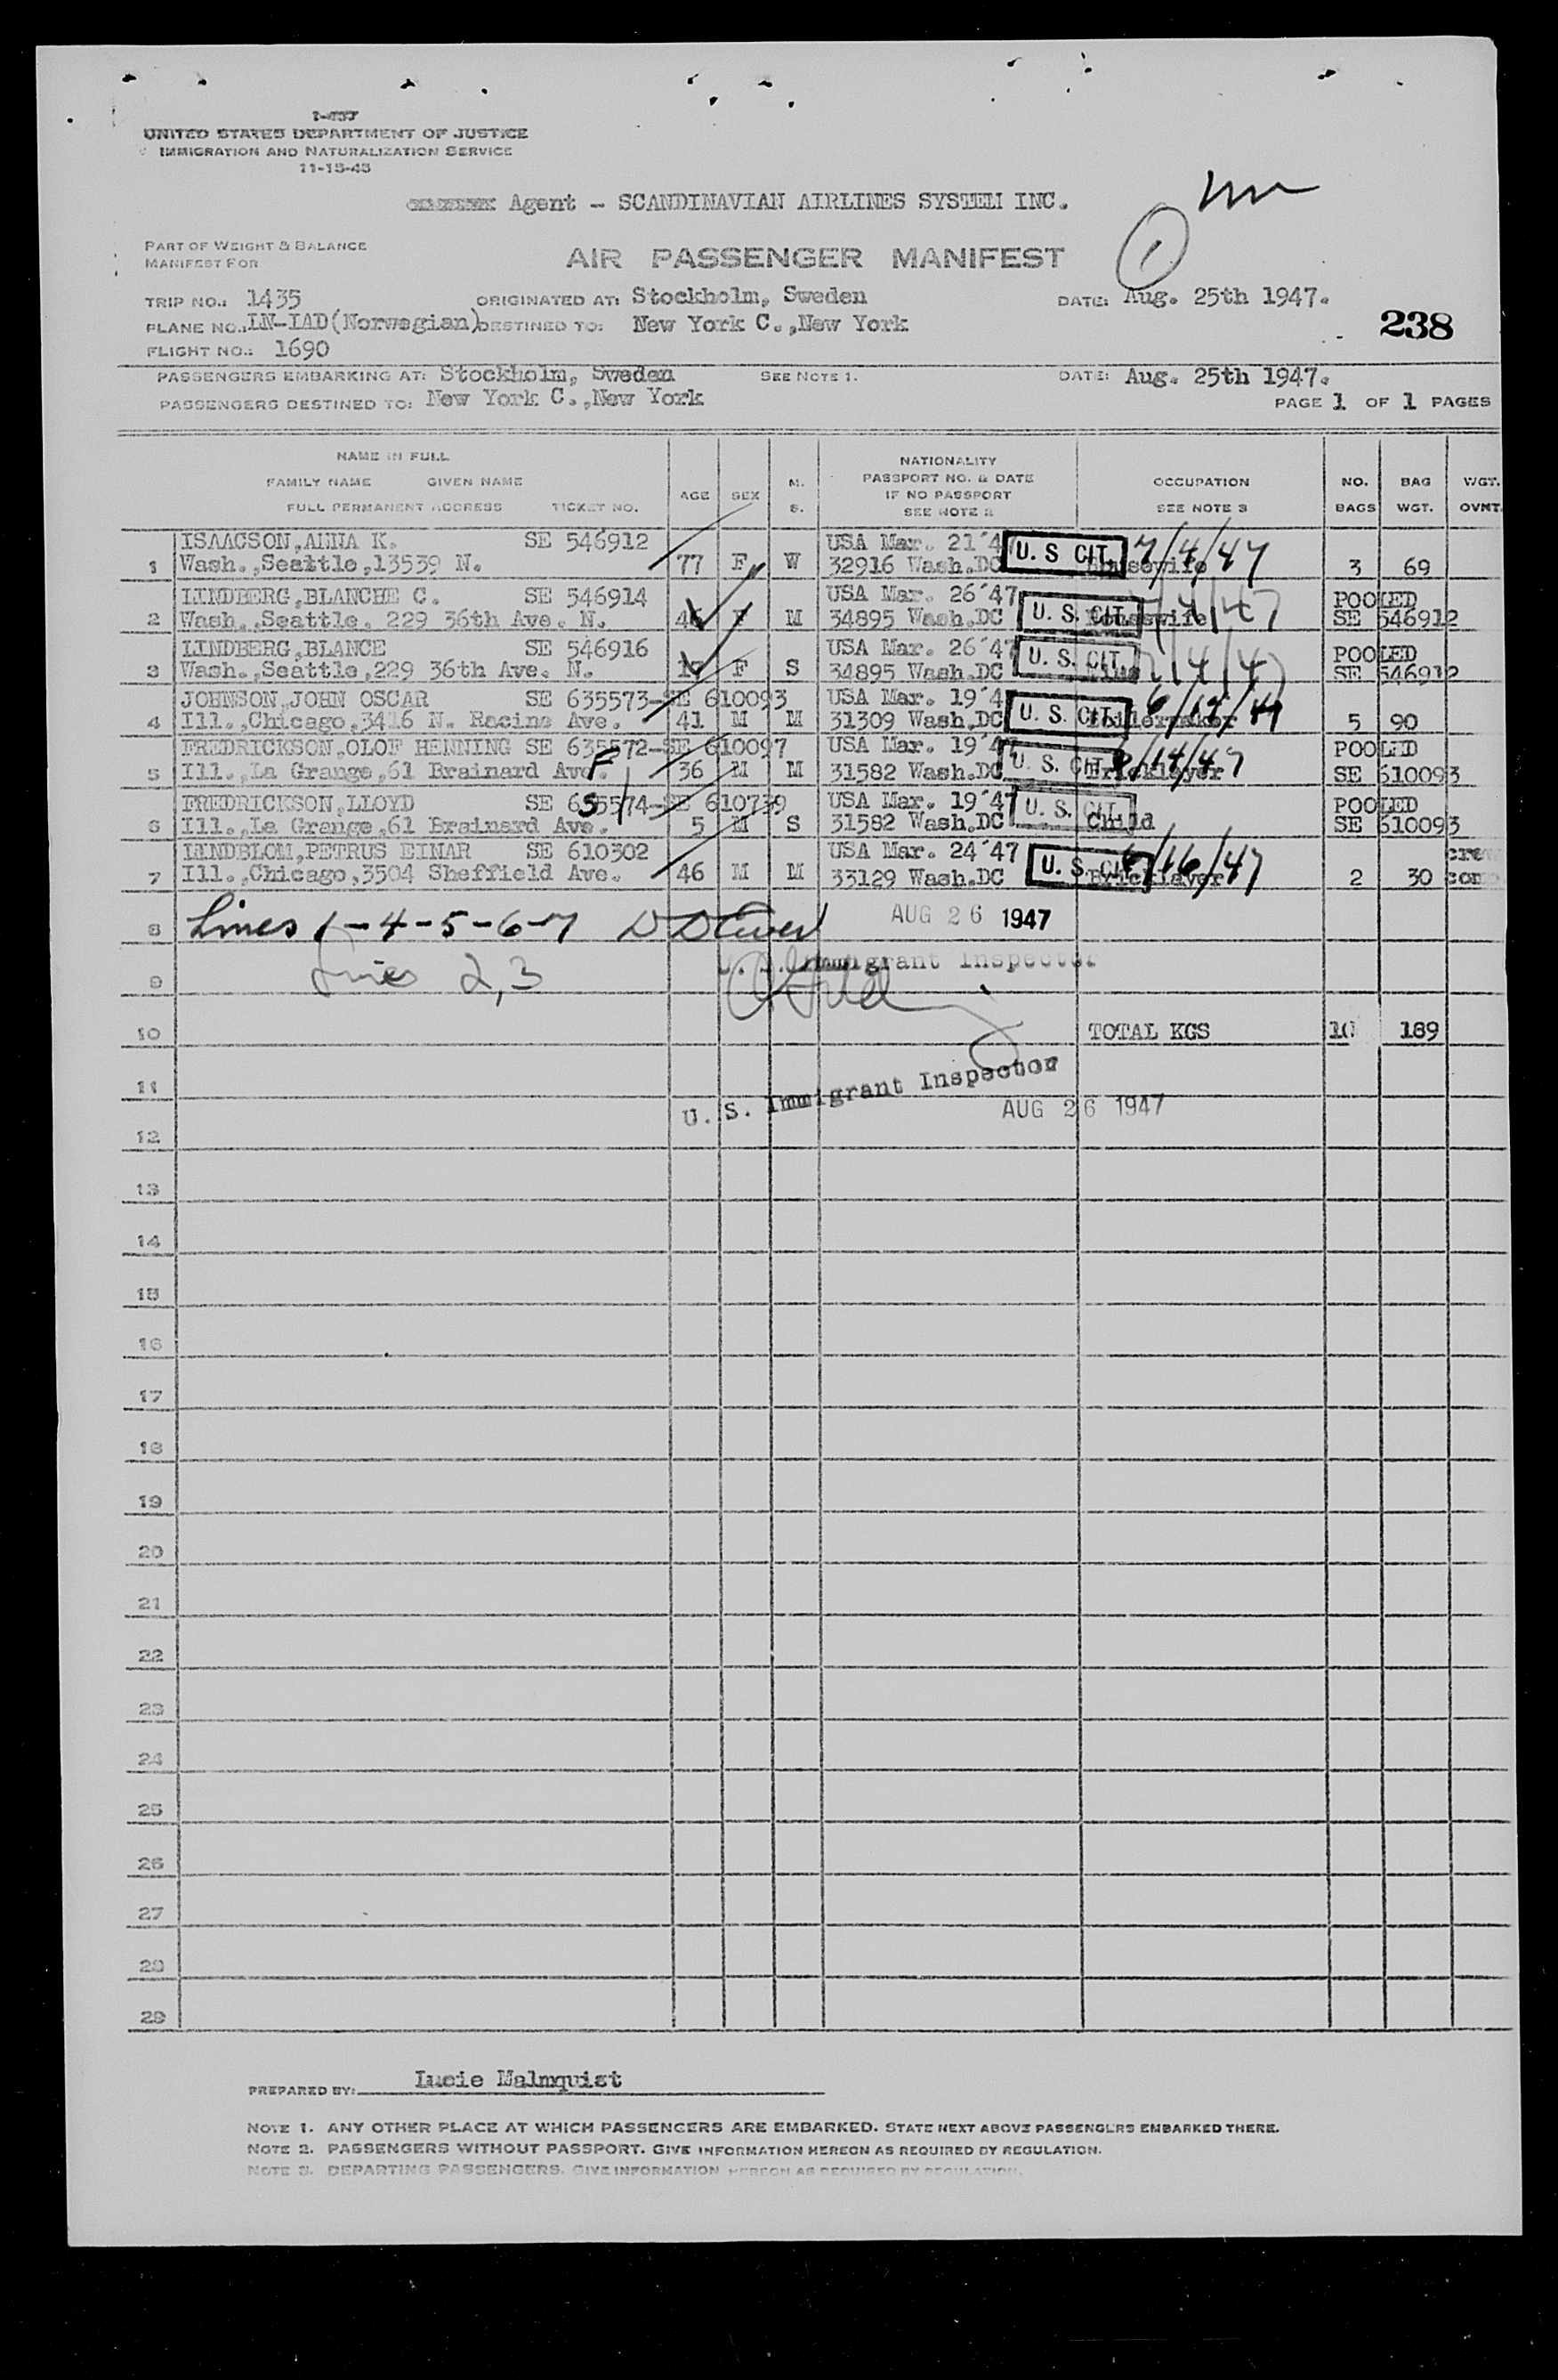 I-457
UNITED STATES DEPARTMENT OF JUSTICE
IMMIGRATION AND NATURALIZATION SERVICE
11-15-45
Agent - SCANDINAVIAN AIRLINES SYSTEM INC.
1
PART OF WEIGHT & BALANCE
MANIFEST FOR
AIR PASSENGER MANIFEST
TRIP NO.: 1435 ORIGINATED AT: Stockholm, Sweden DATE: Aug. 25th 1947.
PLANE NO.: LN-IAD(Norwegian) DESTINED TO: New York C.,New York
238
FLIGHT NO.: 1690
PASSENGERS EMBARKING AT: Stockholm, Sweden SEE NOTE 1. DATE: Aug. 25th 1947.
PASSENGERS DESTINED TO: New York C.,New York
PAGE 1 OF 1 PAGES
NAME IN FULL
FAMILY NAME GIVEN NAME
FULL PERMANENT ADDRESS TICKET NO.
AGE SEX M. S.
NATIONALITY
PASSPORT NO. & DATE
IF NO PASSPORT
SEE NOTE 2
OCCUPATION
SEE NOTE 3
NO. BAGS
BAG WGT.
WGT. OVNT.
ISAACSON,ANNA K. SE 546912 USA Mar. 21'4 U. S CIT. 7/4/47
1 Wash.,Seattle,13539 N. 77 F W 32916 Wash.DC Housewife 3 69
LINDBERG,BLANCHE C. SE 546914 USA Mar. 26'47 U. S. CIT. 7/4/47 POOLED
2 Wash.,Seattle, 229 36th Ave. N. 46 F M 34895 Wash.DC Housewife SE 546912
LINDBERG,BLANCE SE 546916 USA Mar. 26'47 U. S. CIT. 7/4/47 POOLED
3 Wash.,Seattle,229 36th Ave. N. F S 34895 Wash.DC SE 546912
JOHNSON,JOHN OSCAR SE 635573-SE 610093 USA Mar. 19'4 U. S. CIT.
4 Ill.,Chicago,3416 N. Racine Ave. 41 M M 31309 Wash,DC Boilermaker 5 90
FREDRICKSON,OLOF HENNING SE 635572-SE 610097 USA Mar. 19'47 U. S. CIT. POOLED
5 Ill.,La Grange,61 Brainard Ave. F 36 M M 31582 Wash.DC Bricklayer SE 610093
FREDRICKSON,LLOYD SE 635574-SE 610739 USA Mar. 19'47 U. S. CIT. POOLED
6 Ill.,La Grange,61 Brainard Ave. S 5 M S 31582 Wash.DC Child SE 610093
LINDBLOM,PETRUS EINAR SE 610302 USA Mar. 24'47 U. S. CIT. 6/16/47
7 Ill.,Chicago,3504 Sheffield Ave. 46 M M 33129 Wash.DC Bricklayer 2 30
8 Lines 1-4-5-6-7 AUG 26 1947
U. S. Immigrant Inspector
9 Lines 2,3
10 TOTAL KGS 10 189
11 U. S. Immigrant Inspector
AUG 26 1947
12
13
14
15
16
17
18
19
20
21
22
23
24
25
26
27
28
29
PREPARED BY: Lucie Malmquist
NOTE 1. ANY OTHER PLACE AT WHICH PASSENGERS ARE EMBARKED. STATE NEXT ABOVE PASSENGERS EMBARKED THERE.
NOTE 2. PASSENGERS WITHOUT PASSPORT. GIVE INFORMATION HEREON AS REQUIRED BY REGULATION.
NOTE 3. DEPARTING PASSENGERS. GIVE INFORMATION HEREON AS REQUIRED BY REGULATION.